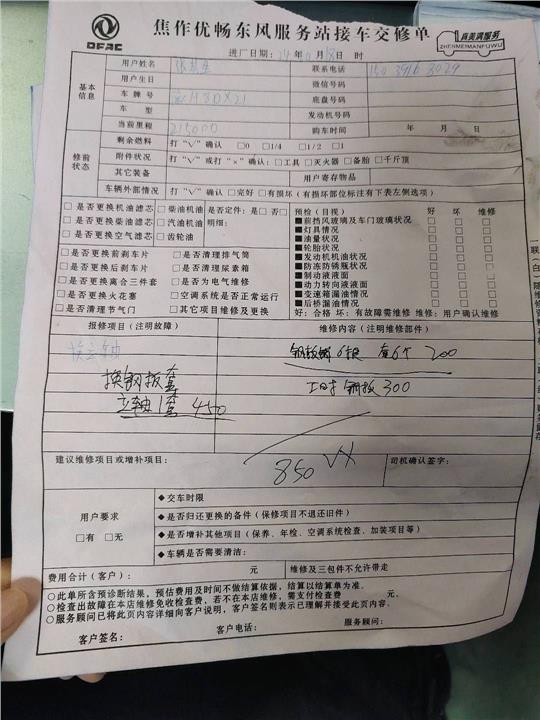 DFAC
焦作优畅东风服务站接车交修单
真美满服务
ZHENMEIMANFUWU
进厂日期：24年 月18日 时
基本信息
用户姓名 联系电话 150 3916 3029
用户生日 微信号码
车牌号 底盘号码
车型 发动机号码
当前里程 215000 购车时间 年 月 日
修前状态
剩余燃料 打“√”确认 □0 □1/4 □1/2 □1
附件状况 打“√”或打“×”确认：□工具 □灭火器 □备胎 □千斤顶
其它装备 用户寄存物品
车辆外部情况 打“√”确认 □完好 □有损坏（有损坏部位标注有下表左侧选项）
□是否更换机油滤芯 □柴油机油 是否定件：□是 □否
□是否更换柴油滤芯 □汽油机油 明细：
□是否更换空气滤芯 □齿轮油
□是否更换前刹车片 □是否清理排气筒
□是否更换后刹车片 □是否清理尿素箱
□是否更换离合三件套 □是否为电气维修
□是否更换火花塞 □空调系统是否正常运行
□是否清理节气门 □其它项目维修及更换
预检（目视） 好 坏 维修
■前挡风玻璃及车门玻璃状况 □ □ □
■灯具情况 □ □ □
■油量状况 □ □ □
■轮胎状况 □ □ □
■发动机机油状况 □ □ □
■防冻防锈瓶状况 □ □ □
■制动液液面 □ □ □
■动力转向液液面 □ □ □
■变速箱漏油情况 □ □ □
■后桥漏油情况 □ □ □
好：合格 坏：有故障需维修 维修：用户确认维修
报修项目（注明故障） 维修内容（注明维修部件）
换立轴
钢板销6根 套6个 200
换钢板套
工时 钢板 300
立轴1套 450
建议维修项目或增补项目：
850
司机确认签字：
用户要求
□有 □无
◆交车时限
◆是否归还更换的备件（保修项目不退还旧件）
◆是否增补其他项目（保养、年检、空调系统检查、加装项目等）
◆车辆是否需要清洁：
费用合计（客户）： 元 维修及三包件不允许带走
○此单所含预诊断结果，预估费用及时间不做结算依据，结算以结算单为准。
○检查出故障在本店维修免收检查费，若不在本店维修，需支付检查费 元。
○服务顾问已将此页内容详细向客户说明，客户签名则表示已理解并接受此页内容。
客户签名： 客户电话： 服务顾问：